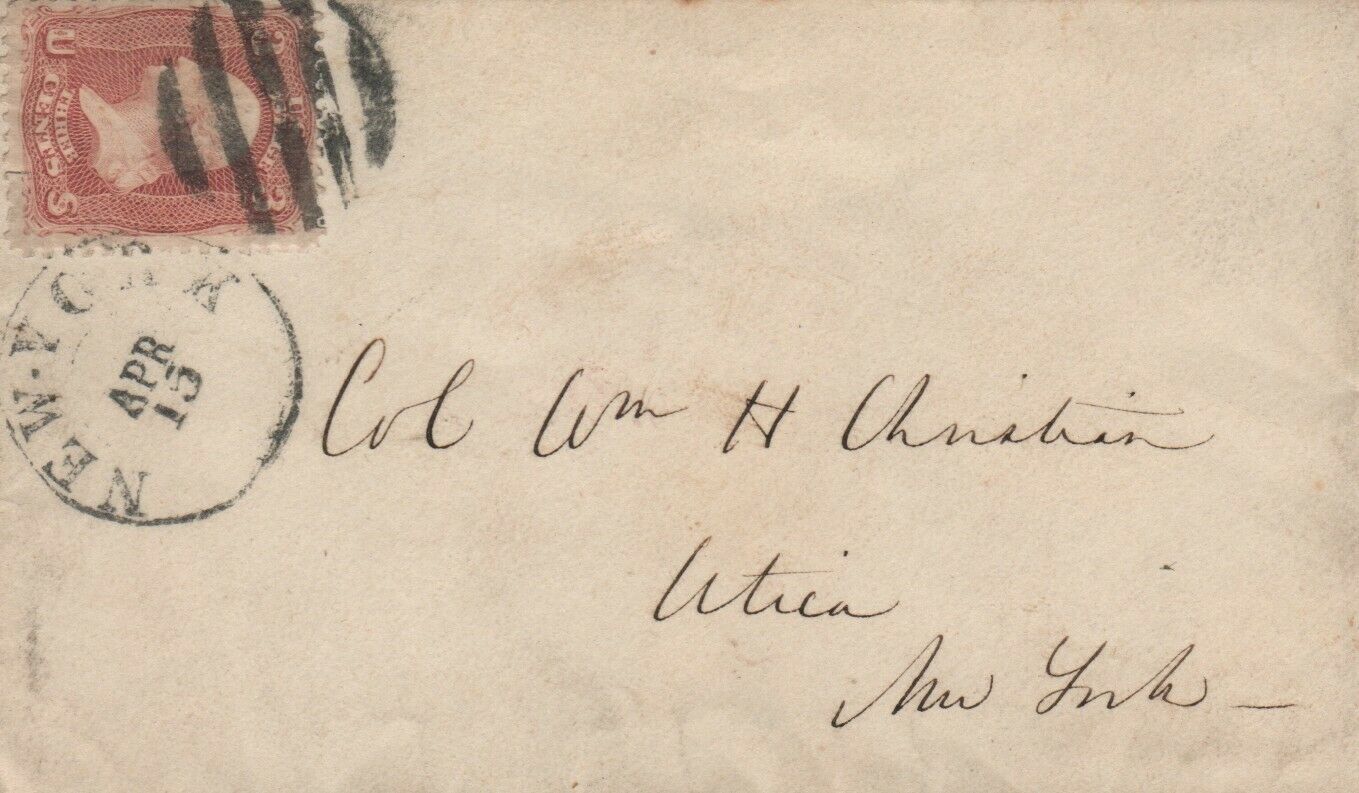 U S
3 3
THREE
CENTS
NEW-YORK
APR
15
Col Wm H Christian
Utica
New York —